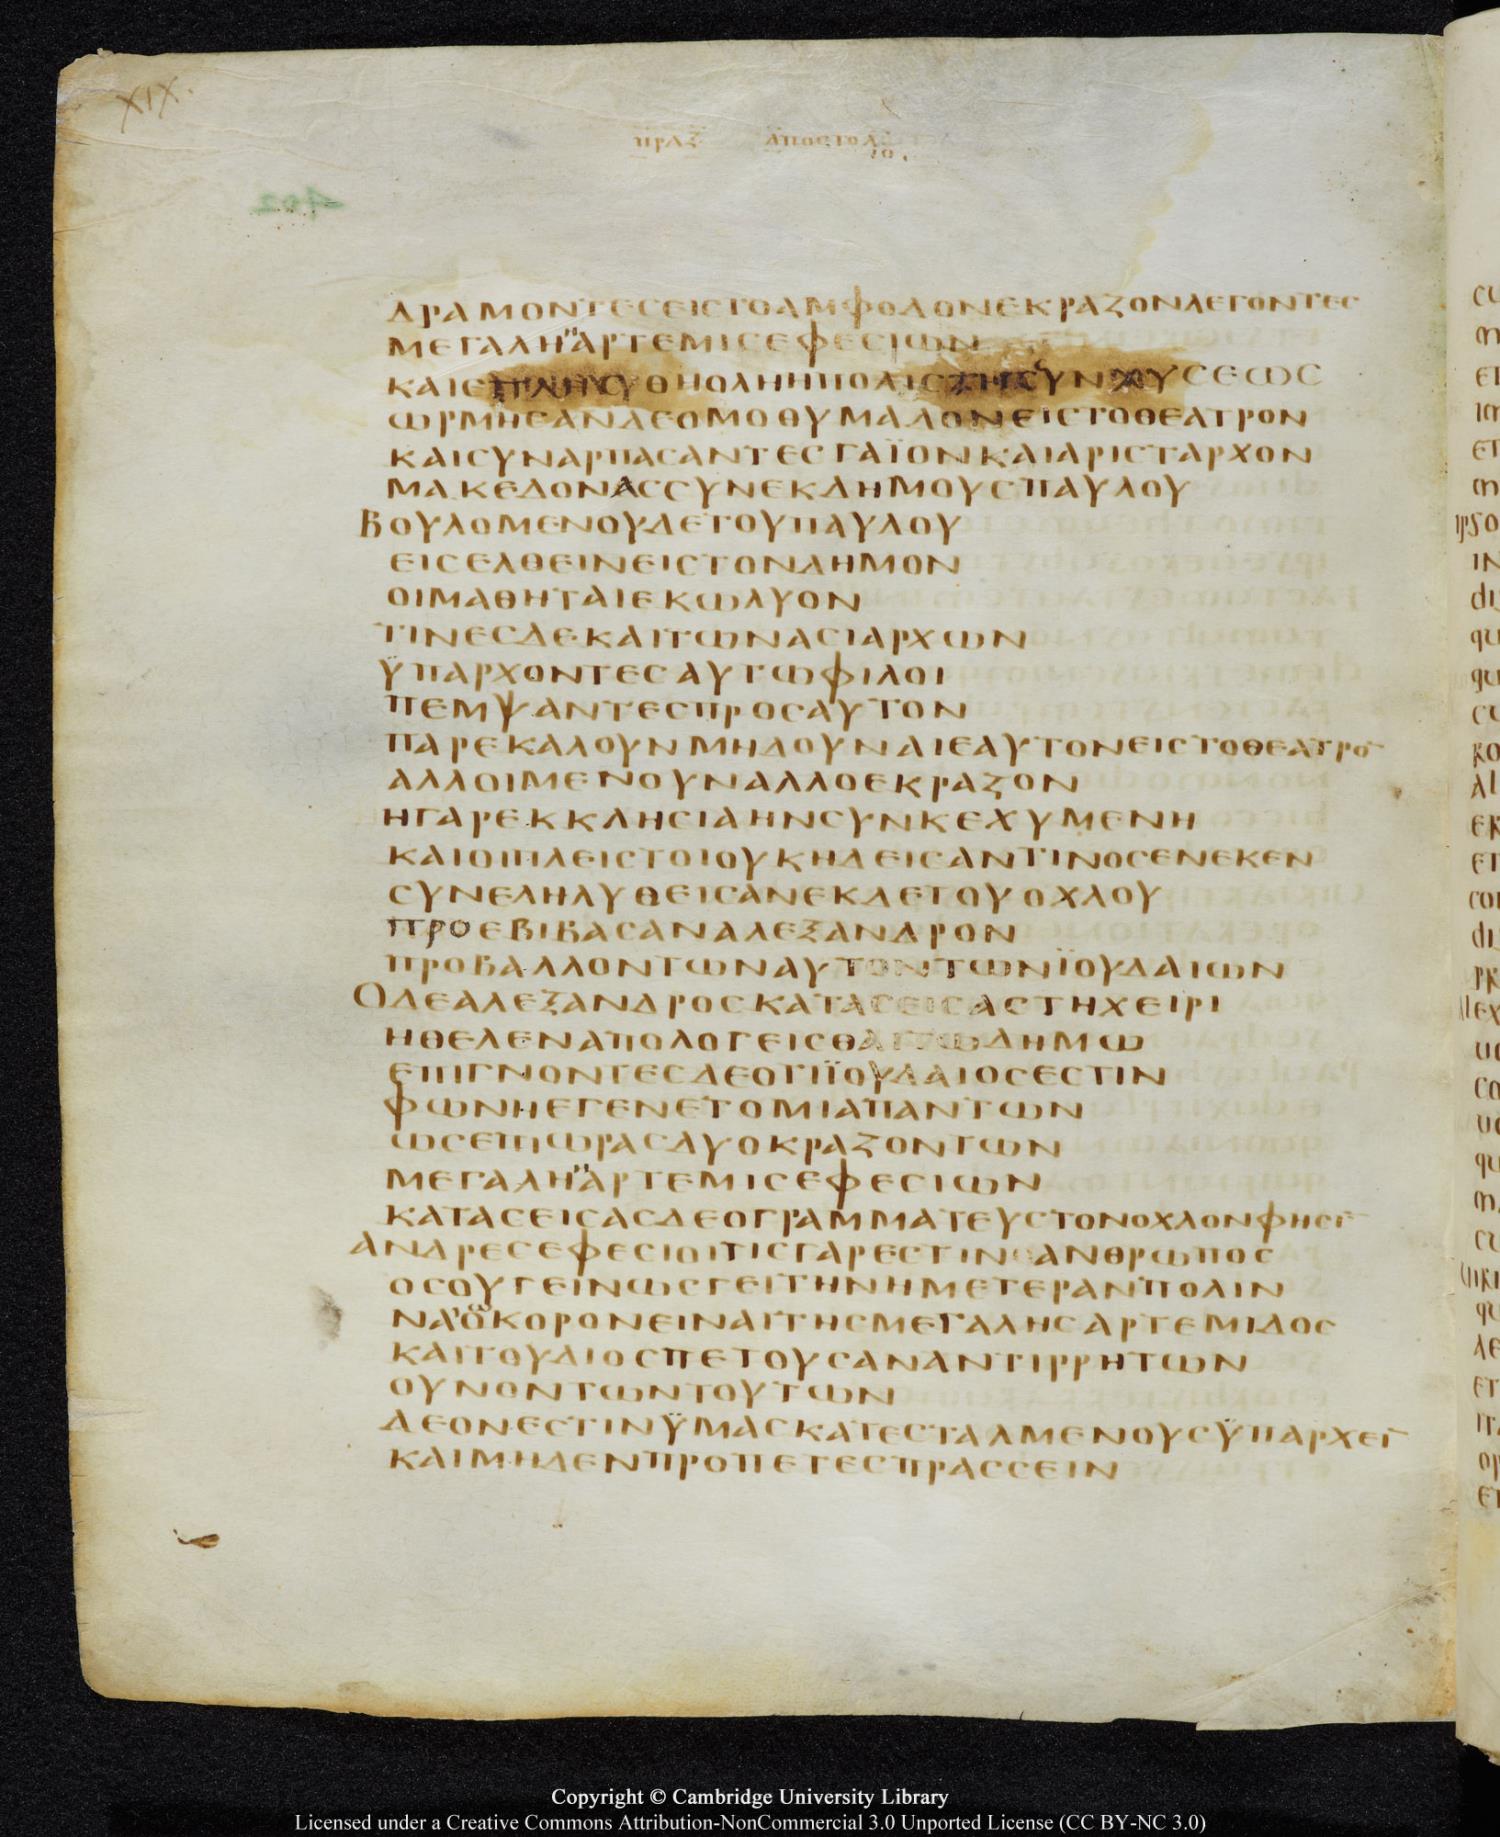 XIX.
ΠΡΑΞ ΑΠΟΣΤΟΛ
402
ΔΡΑΜΟΝΤΕϹΕΙϹΤΟΑΜΦΟΔΟΝΕΚΡΑΖΟΝΛΕΓΟΝΤΕϹ
ΜΕΓΑΛΗΑΡΤΕΜΙϹΕΦΕϹΙΩΝ
ΚΑΙϹΥΝΕΧΥΘΗΟΛΗΗΠΟΛΙϹ ϹΥΝΧΥϹΕΩϹ
ΩΡΜΗϹΑΝΔΕΟΜΟΘΥΜΑΔΟΝΕΙϹΤΟΘΕΑΤΡΟΝ
ΚΑΙϹΥΝΑΡΠΑϹΑΝΤΕϹΓΑΪΟΝΚΑΙΑΡΙϹΤΑΡΧΟΝ
ΜΑΚΕΔΟΝΑϹϹΥΝΕΚΔΗΜΟΥϹΠΑΥΛΟΥ
ΒΟΥΛΟΜΕΝΟΥΔΕΤΟΥΠΑΥΛΟΥ
ΕΙϹΕΛΘΕΙΝΕΙϹΤΟΝΔΗΜΟΝ
ΟΙΜΑΘΗΤΑΙΕΚΩΛΥΟΝ
ΤΙΝΕϹΔΕΚΑΙΤΩΝΑϹΙΑΡΧΩΝ
ΫΠΑΡΧΟΝΤΕϹΑΥΤΩΦΙΛΟΙ
ΠΕΜΨΑΝΤΕϹΠΡΟϹΑΥΤΟΝ
ΠΑΡΕΚΑΛΟΥΝΜΗΔΟΥΝΑΙΕΑΥΤΟΝΕΙϹΤΟΘΕΑΤΡΟ¯
ΑΛΛΟΙΜΕΝΟΥΝΑΛΛΟΕΚΡΑΖΟΝ
ΗΓΑΡΕΚΚΛΗϹΙΑΗΝϹΥΝΚΕΧΥΜΕΝΗ
ΚΑΙΟΙΠΛΕΙϹΤΟΙΟΥΚΗΔΕΙϹΑΝΤΙΝΟϹΕΝΕΚΕΝ
ϹΥΝΕΛΗΛΥΘΕΙϹΑΝΕΚΔΕΤΟΥΟΧΛΟΥ
ΠΡΟΕΒΙΒΑϹΑΝΑΛΕΞΑΝΔΡΟΝ
ΠΡΟΒΑΛΛΟΝΤΩΝΑΥΤΟΝΤΩΝΪΟΥΔΑΙΩΝ
ΟΔΕΑΛΕΞΑΝΔΡΟϹΚΑΤΑϹΕΙϹΑϹΤΗΧΕΙΡΙ
ΗΘΕΛΕΝΑΠΟΛΟΓΕΙϹΘΑΙΤΩΔΗΜΩ
ΕΠΙΓΝΟΝΤΕϹΔΕΟΤΙΪΟΥΔΑΙΟϹΕϹΤΙΝ
ΦΩΝΗΕΓΕΝΕΤΟΜΙΑΠΑΝΤΩΝ
ΩϹΕΠΙΩΡΑϹΔΥΟΚΡΑΖΟΝΤΩΝ
ΜΕΓΑΛΗΑΡΤΕΜΙϹΕΦΕϹΙΩΝ
ΚΑΤΑϹΕΙϹΑϹΔΕΟΓΡΑΜΜΑΤΕΥϹΤΟΝΟΧΛΟΝΦΗϹΙ¯
ΑΝΔΡΕϹΕΦΕϹΙΟΙΤΙϹΓΑΡΕϹΤΙΝΟΑΝΘΡΩΠΟϹ
ΟϹΟΥΓΕΙΝΩϹΓΕΙΤΗΝΗΜΕΤΕΡΑΝΠΟΛΙΝ
ΝΑΟΚΟΡΟΝΕΙΝΑΙΤΗϹΜΕΓΑΛΗϹΑΡΤΕΜΙΔΟϹ
ΚΑΙΤΟΥΔΙΟϹΠΕΤΟΥϹΑΝΑΝΤΙΡΡΗΤΩΝ
ΟΥΝΟΝΤΩΝΤΟΥΤΩΝ
ΔΕΟΝΕϹΤΙΝΫΜΑϹΚΑΤΕϹΤΑΛΜΕΝΟΥϹΫΠΑΡΧΕΙ¯
ΚΑΙΜΗΔΕΝΠΡΟΠΕΤΕϹΠΡΑϹϹΕΙΝ
Copyright © Cambridge University Library
Licensed under a Creative Commons Attribution-NonCommercial 3.0 Unported License (CC BY-NC 3.0)